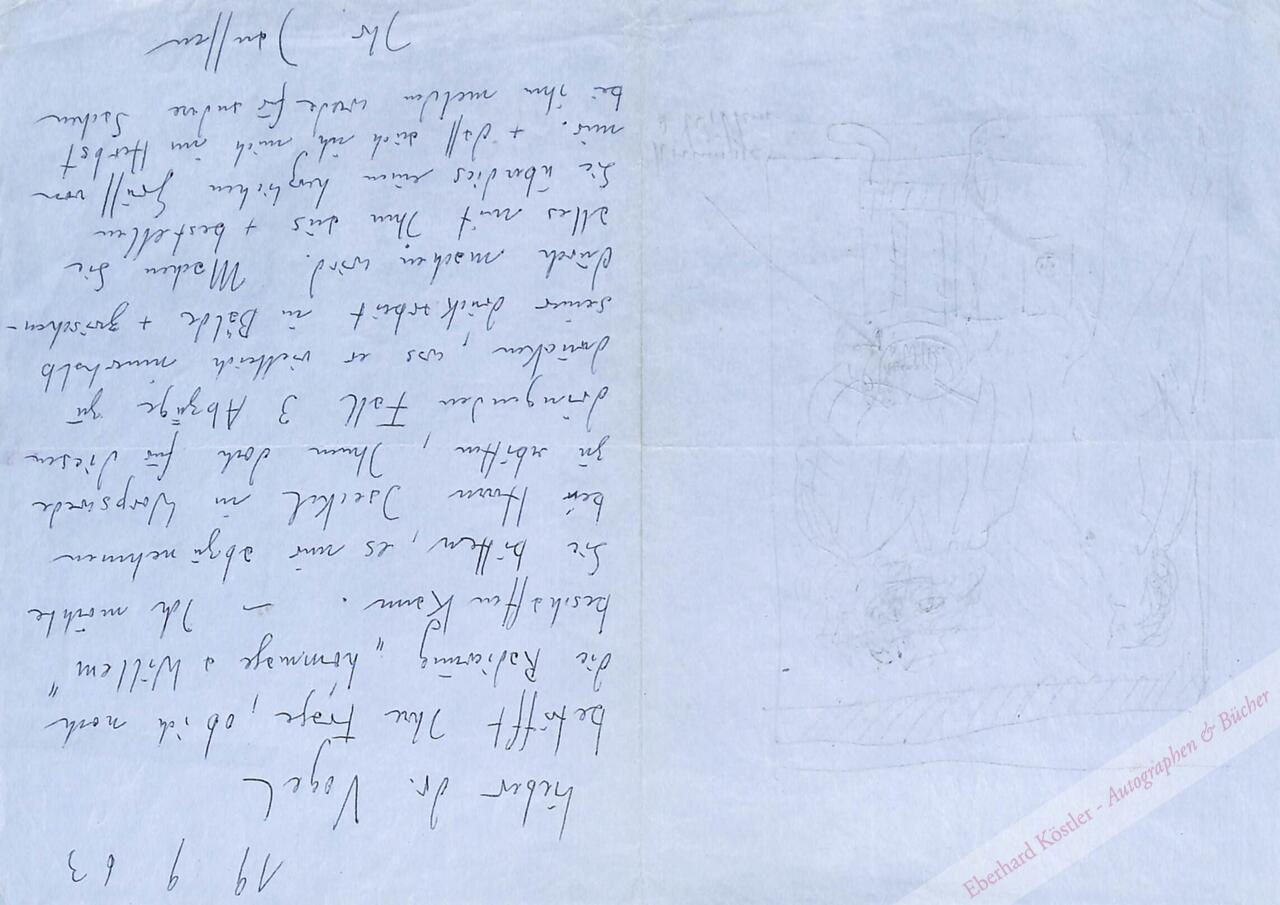 19 9 63
Lieber dr. Vogel
betrifft Ihre Frage, ob ich noch
die Radierung „hommage a Willem"
beschaffen kann. – Ich möchte
Sie bitten, es mir abzunehmen
bei Herrn Jaeckel in Worpswede
zu erbitten, Ihnen doch für diesen
dringenden Fall 3 Abzüge zu
drücken, was er vielleich innerhalb
seiner drückarbeit in Bälde + zwischen-
dürch machen wird. Machen Sie
alles mit Ihm aus + bestellen
Sie überdies einen herzlichen Grüss von
mir. + dass auch ich mich im Herbst
bei ihm melden werde für andere Sachen
Ihr Janssen
Eberhard Köstler - Autographen & Bücher